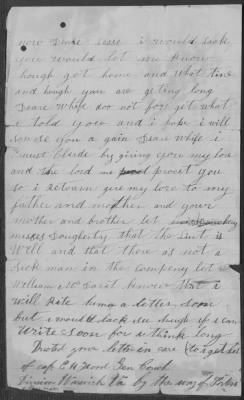 now Deare Jesse i would Like
you would let me know
hough got home and what time
and hough you are geting long
Deare whife doo not for get what
i told you and i hope i will
son se you a gain Deare whife i
must Close by giving you my love
and the lord me protect you
so i return give my love to my
father and mother and your
mother and brother let
misses Dougherty that the Lieut is
Well and that theare is not a
sick man in the company let
William Mc know that i
will Rite him a letter Soon
but i would lack see hough if i can
Write Soon for i think long
Direct your letter in care to
of cap E H Gen
Warwick Va by the way of